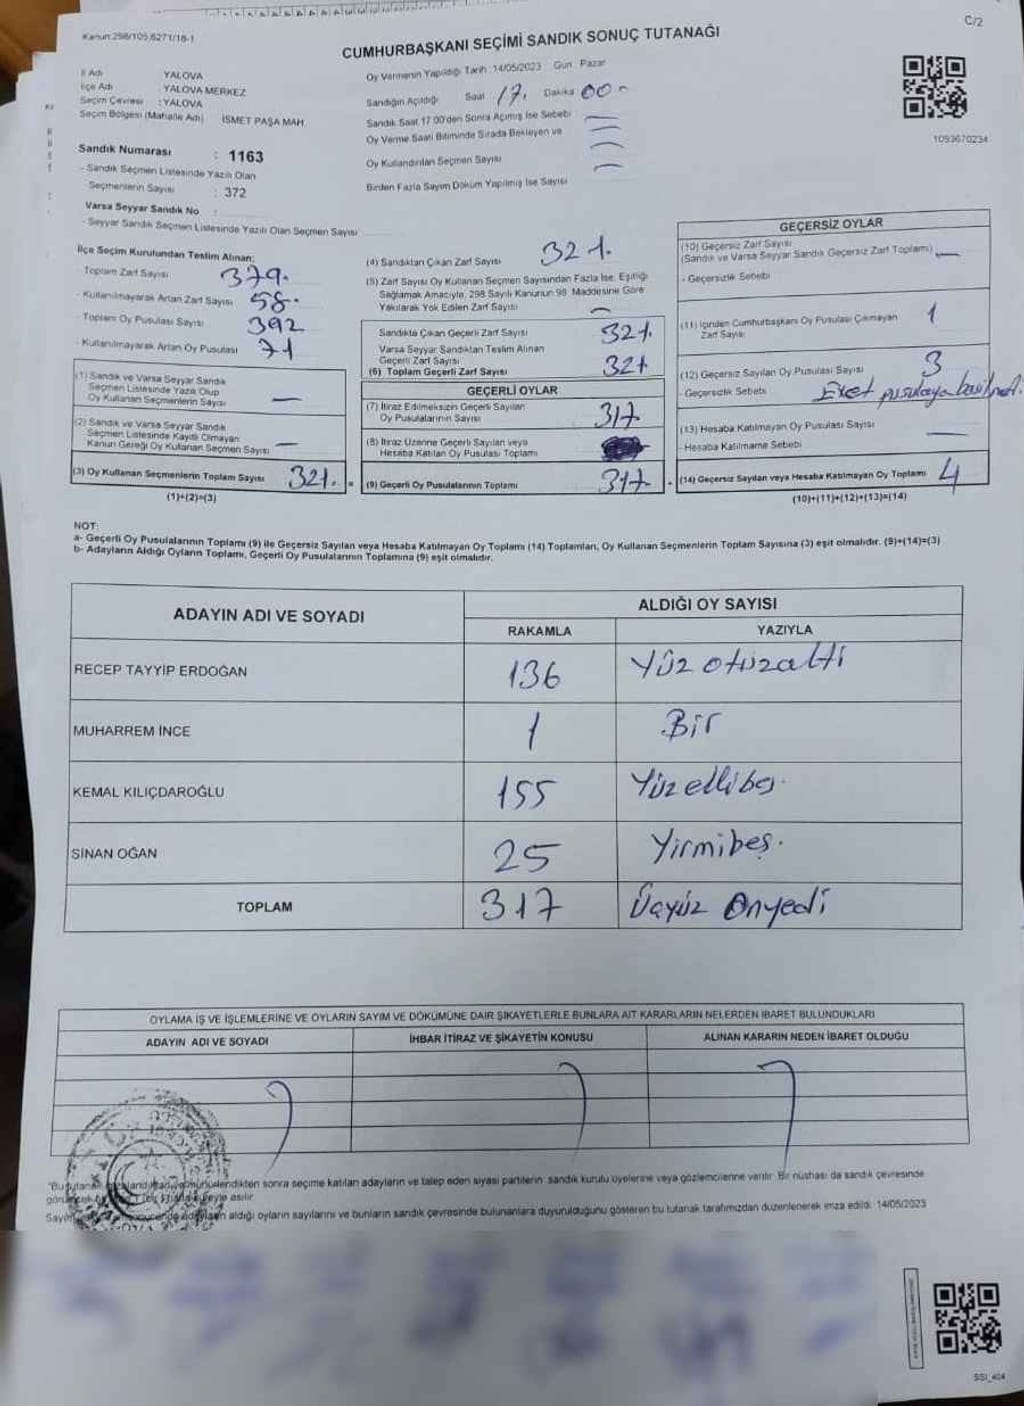 Kanun:298/105,6271/18-1
C/2
CUMHURBAŞKANI SEÇİMİ SANDIK SONUÇ TUTANAĞI
İl Adı YALOVA
İlçe Adı YALOVA MERKEZ
Seçim Çevresi : YALOVA
Seçim Bölgesi (Mahalle Adı) İSMET PAŞA MAH.
Sandık Numarası : 1163
- Sandık Seçmen Listesinde Yazılı Olan
Seçmenlerin Sayısı : 372
Varsa Seyyar Sandık No :
- Seyyar Sandık Seçmen Listesinde Yazılı Olan Seçmen Sayısı
Oy Vermenin Yapıldığı Tarih : 14/05/2023 Gün : Pazar
Sandığın Açıldığı Saat 17. Dakika 00
Sandık Saat 17:00'den Sonra Açılmış İse Sebebi
Oy Verme Saati Bitiminde Sırada Bekleyen ve
Oy Kullandırılan Seçmen Sayısı
Birden Fazla Sayım Döküm Yapılmış İse Sayısı
1093670234
İlçe Seçim Kurulundan Teslim Alınan;
Toplam Zarf Sayısı 379.
- Kullanılmayarak Artan Zarf Sayısı 58.
- Toplam Oy Pusulası Sayısı 392
- Kullanılmayarak Artan Oy Pusulası 71
(1) Sandık ve Varsa Seyyar Sandık
Seçmen Listesinde Yazılı Olup
Oy Kullanan Seçmenlerin Sayısı —
(2) Sandık ve Varsa Seyyar Sandık
Seçmen Listesinde Kayıtlı Olmayan
Kanun Gereği Oy Kullanan Seçmen Sayısı —
(3) Oy Kullanan Seçmenlerin Toplam Sayısı 321. =
(1)+(2)=(3)
(4) Sandıktan Çıkan Zarf Sayısı 321.
(5) Zarf Sayısı Oy Kullanan Seçmen Sayısından Fazla İse, Eşitliği
Sağlamak Amacıyla, 298 Sayılı Kanunun 98. Maddesine Göre
Yakılarak Yok Edilen Zarf Sayısı —
Sandıkta Çıkan Geçerli Zarf Sayısı 321.
Varsa Seyyar Sandıktan Teslim Alınan
Geçerli Zarf Sayısı
(6) Toplam Geçerli Zarf Sayısı 321
GEÇERLİ OYLAR
(7) İtiraz Edilmeksizin Geçerli Sayılan
Oy Pusulalarının Sayısı 317
(8) İtiraz Üzerine Geçerli Sayılan veya
Hesaba Katılan Oy Pusulası Toplamı
(9) Geçerli Oy Pusulalarının Toplamı 317
GEÇERSİZ OYLAR
(10) Geçersiz Zarf Sayısı
(Sandık ve Varsa Seyyar Sandık Geçersiz Zarf Toplamı) —
- Geçersizlik Sebebi
(11) İçinden Cumhurbaşkanı Oy Pusulası Çıkmayan
Zarf Sayısı 1
(12) Geçersiz Sayılan Oy Pusulası Sayısı 3
- Geçersizlik Sebebi : Evet pusulaya
(13) Hesaba Katılmayan Oy Pusulası Sayısı —
- Hesaba Katılmama Sebebi
(14) Geçersiz Sayılan veya Hesaba Katılmayan Oy Toplamı 4
(10)+(11)+(12)+(13)=(14)
NOT:
a- Geçerli Oy Pusulalarının Toplamı (9) ile Geçersiz Sayılan veya Hesaba Katılmayan Oy Toplamı (14) Toplamları, Oy Kullanan Seçmenlerin Toplam Sayısına (3) eşit olmalıdır. (9)+(14)=(3)
b- Adayların Aldığı Oyların Toplamı, Geçerli Oy Pusulaların Toplamına (9) eşit olmalıdır.
ADAYIN ADI VE SOYADI
ALDIĞI OY SAYISI
RAKAMLA YAZIYLA
RECEP TAYYİP ERDOĞAN 136 Yüz otuzaltı
MUHARREM İNCE 1 Bir
KEMAL KILIÇDAROĞLU 155 Yüzellibeş.
SİNAN OĞAN 25 Yirmibeş.
TOPLAM 317 Üçyüz Onyedi
OYLAMA İŞ VE İŞLEMLERİNE VE OYLARIN SAYIM VE DÖKÜMÜNE DAİR ŞİKAYETLERLE BUNLARA AİT KARARLARIN NELERDEN İBARET BULUNDUKLARI
ADAYIN ADI VE SOYADI İHBAR İTİRAZ VE ŞİKAYETİN KONUSU ALINAN KARARIN NEDEN İBARET OLDUĞU
sonra seçime katılan adayların ve talep eden siyasi partilerin sandık kurulu üyelerine veya gözlemcilerine verilir. Bir nüshası da sandık çevresinde
asılır.
aldığı oyların sayılarını ve bunların sandık çevresinde bulunanlara duyurulduğunu gösteren bu tutanak tarafımızdan düzenlenerek imza edildi. 14/05/2023
SSI_404